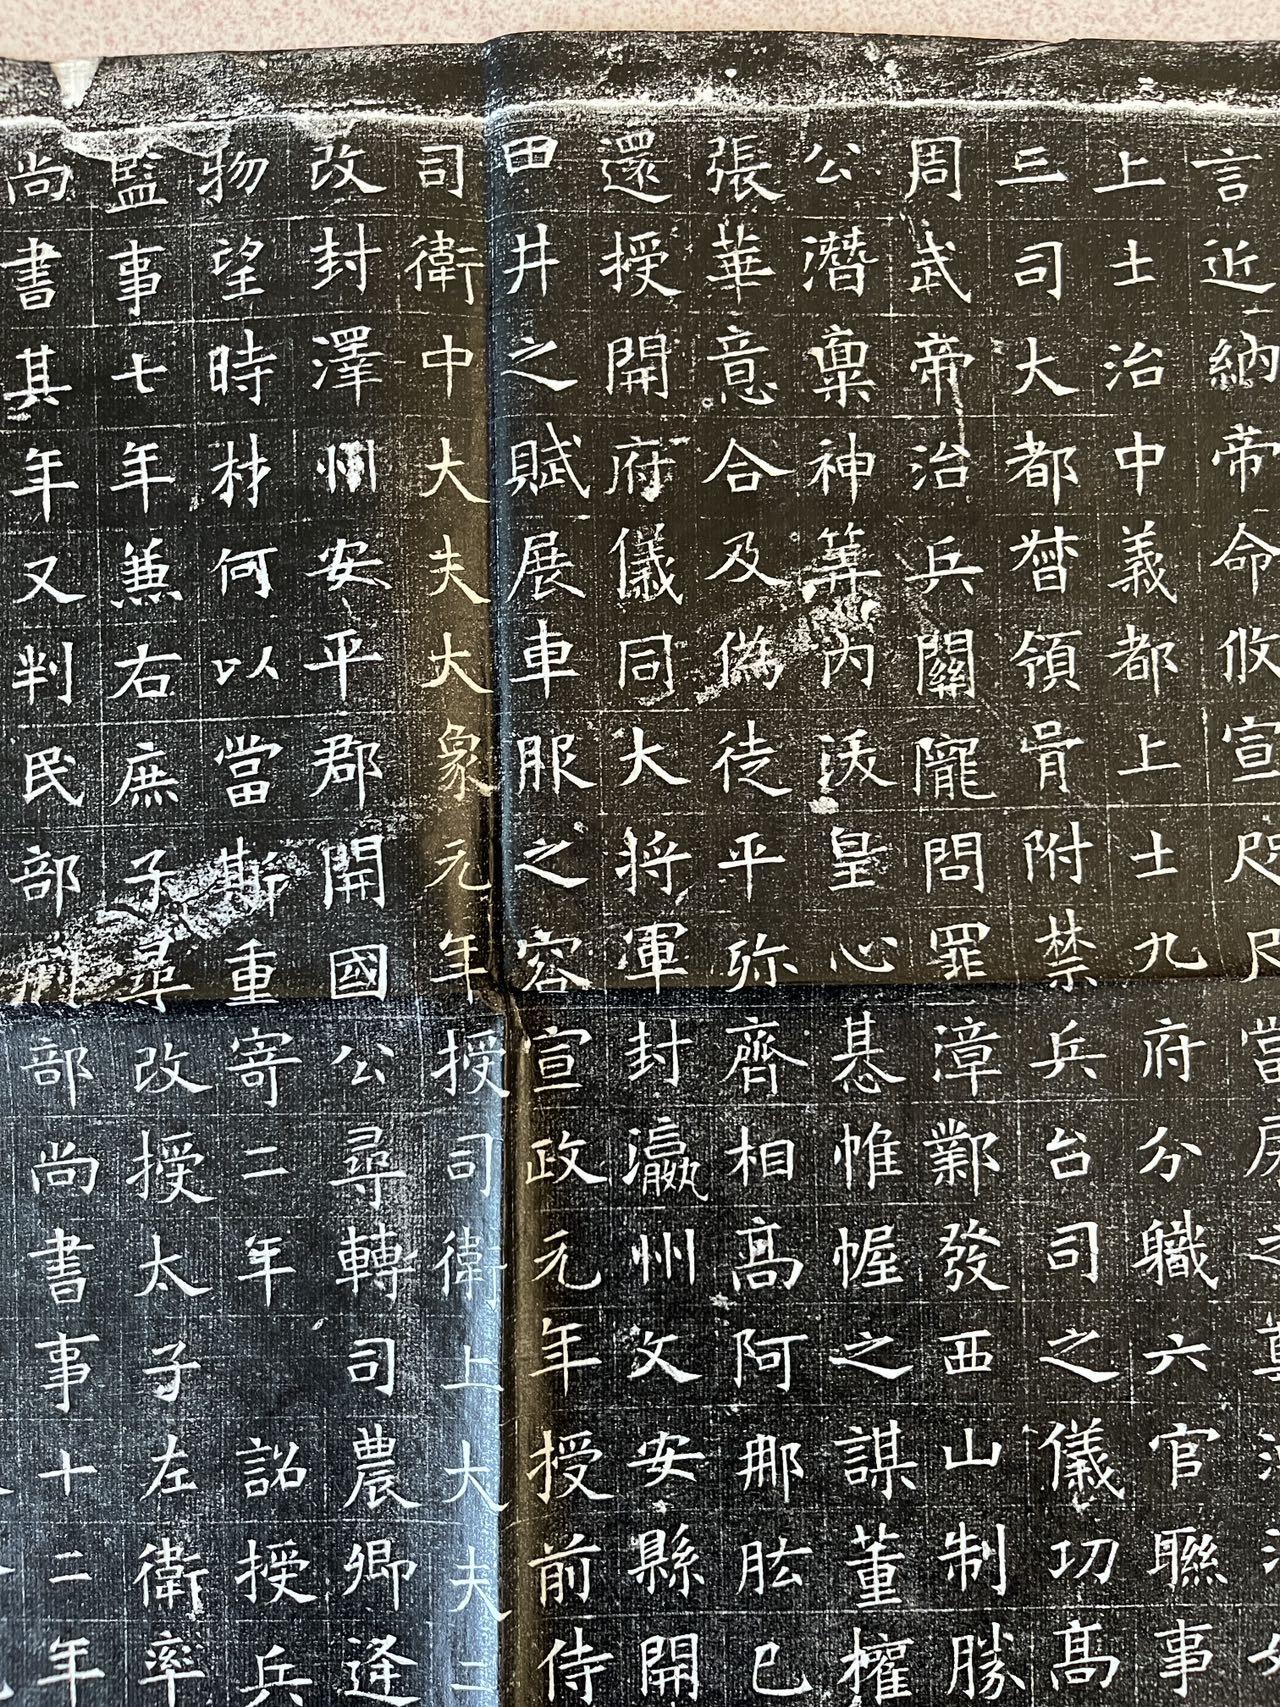 言近納帝命攸宣咫尺當
上士治中義都上士九府分職六官聯事
三司大都督領骨附禁兵台司之儀切高
周武帝治兵關隴問罪漳鄴發西山制勝
公潛稟神筭內沃皇心惎帷幄之謀董權
張華意合及偽徒平殄齊相高阿那肱已
還授開府儀同大將軍封瀛州文安縣開
田井之賦展車服之容宣政元年授前侍
司衛中大夫大象元年授司衛上大夫二
改封澤州安平郡開國公尋轉司農卿逢
物望時材何以當斯重寄二年 詔授兵
監事七年兼右庶子尋改授太子左衛率
尚書其年又判民部刑部尚書事十二年